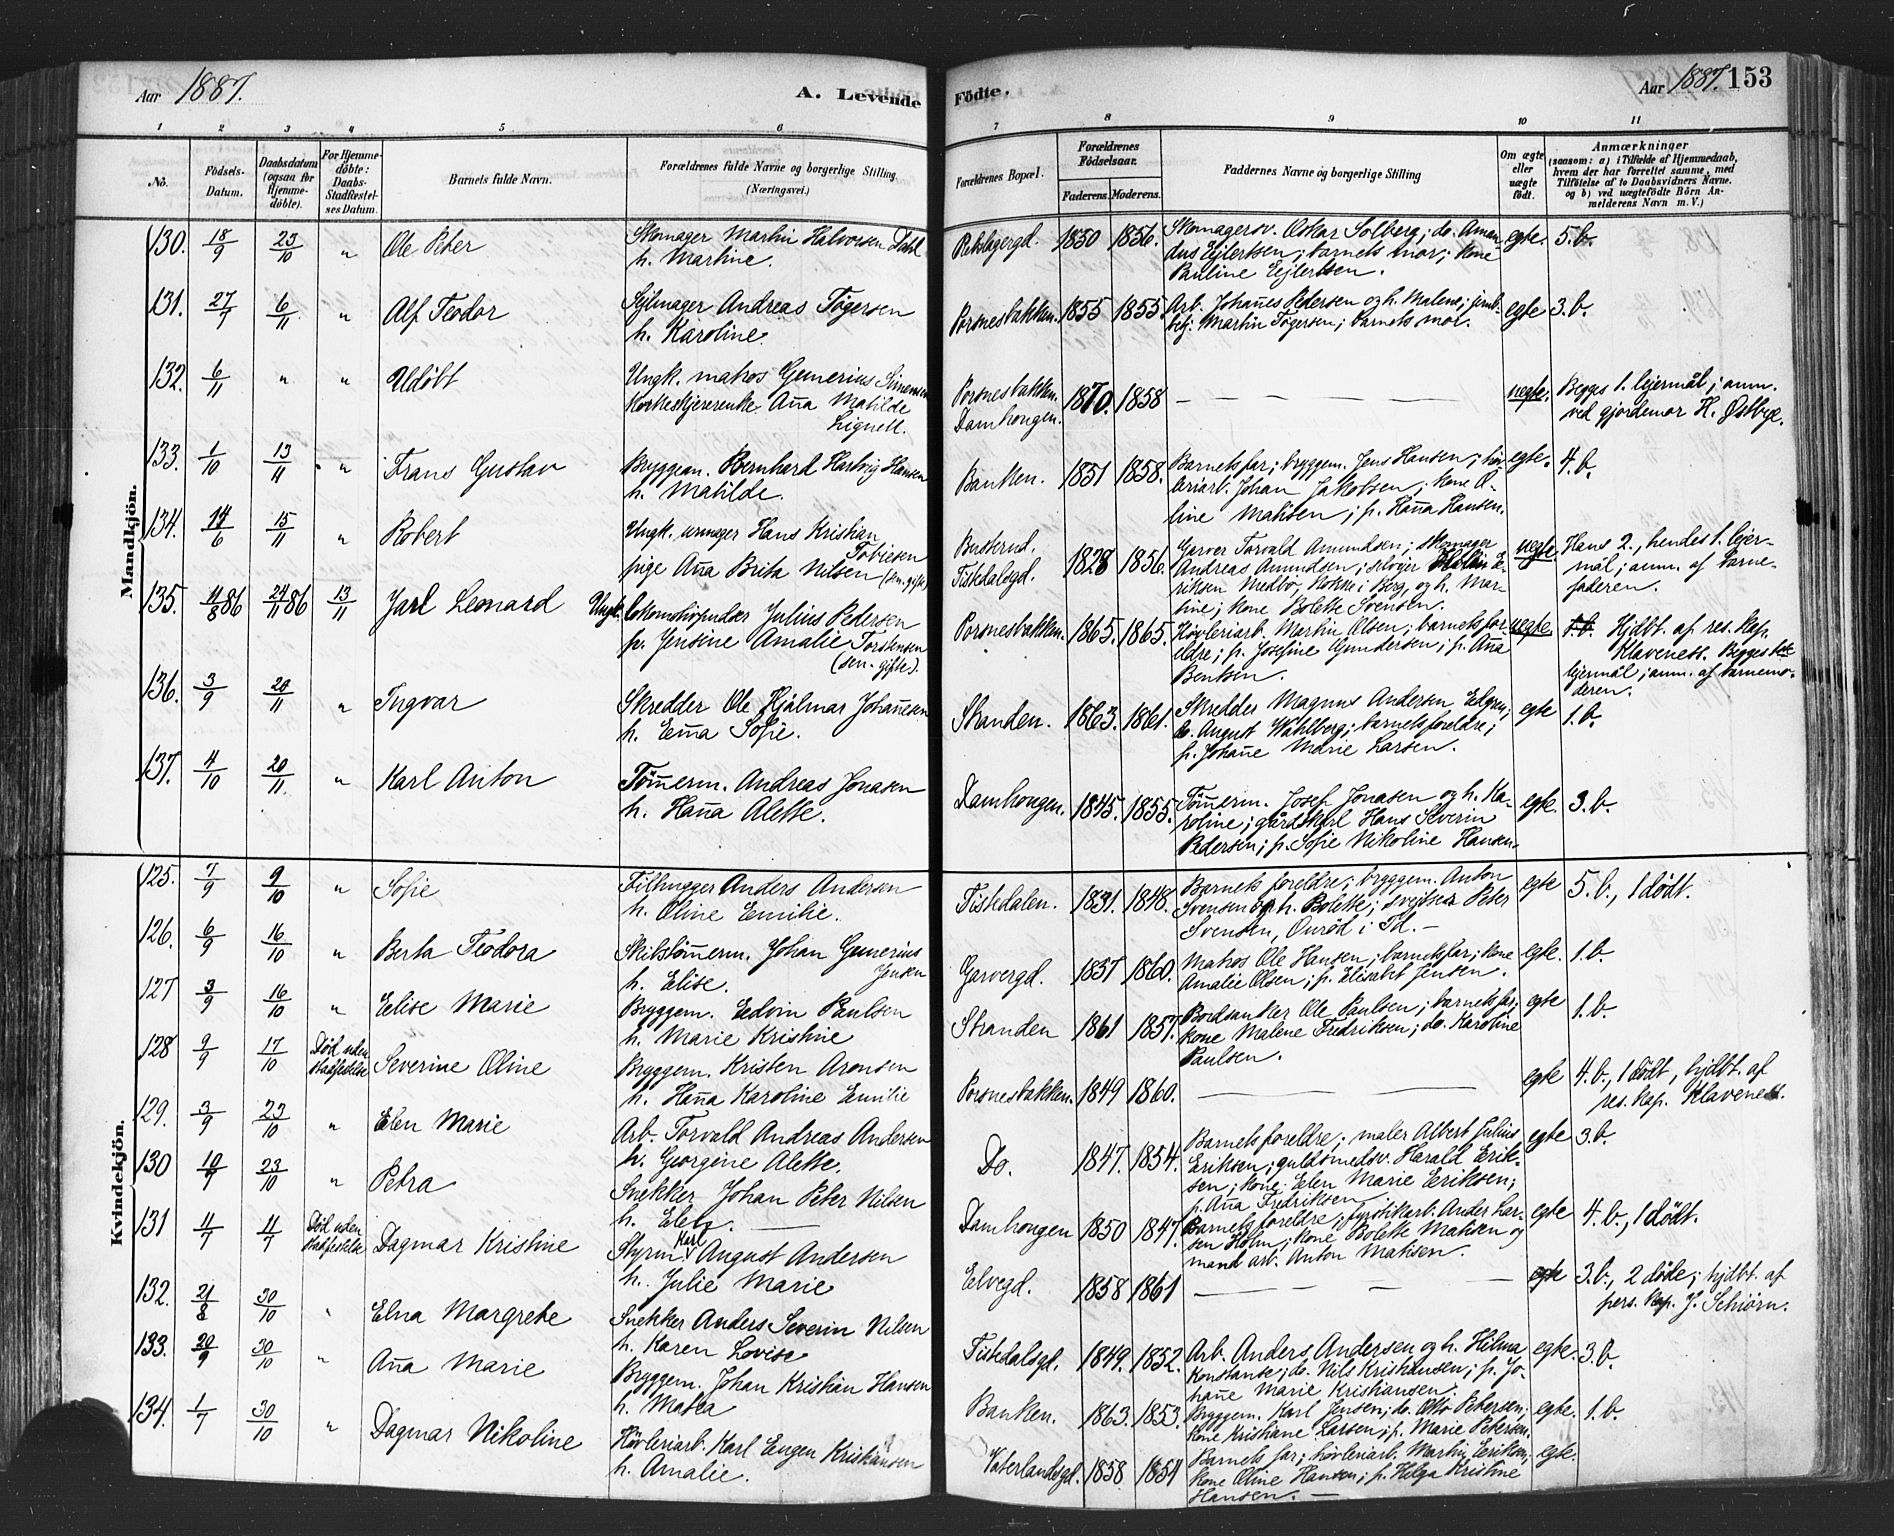 Aar 1887.
A. Levende
Födte.
Aar 1887. 153
1 2 3 4 5 6 7 8 9 10 11
No.
Födsels-
Datum.
Daabsdatum
(ogsaa for
Hjemme-
döbte).
For Hjemme-
döbte:
Daabs-
Stadfæstel-
ses Datum.
Barnets fulde Navn.
Forældrenes fulde Navne og borgerlige Stilling.
(Næringsvei.)
Forældrenes Bopæl.
Forældrenes
Födselsaar.
Faderens. Moderens.
Faddernes Navne og borgerlige Stilling
Om ægte
eller
uægte
födt.
Anmærkninger
(saasom: a) i Tilfælde af Hjemmedaab,
hvem der har forrettet samme, med
Tilföielse af to Daabsvidners Navne,
og b) ved uægtefödte Börn An-
melderens Navn m. V.)
Mandkjön.
130. 18/9 23/10 " Ole Peter
Skomager Martin Halvorsen Dahl
h. Martine.
1850 1856.
Skomagersv. Oskar Solberg; do. Aman-
dus Ejlertsen; barnets mor; kone
Pauline Ejlertsen.
egte. 5.b.
131. 27/7 6/11 " Alf Teodor
Sejlmager Andreas Tøgersen
h. Karoline.
Porsnesbakken. 1855 1855.
Arb. Johanes Pedersen og h. Malene; jernb.
betj. Martin Tøgersen; barnets mor.
egte 3.b.
132. 6/11 " " Udøbt
Ungk. matros Gunerius Simensen
Korkeskjererenke Ana Matilde
Lignell.
Porsnesbakken.
Damhaugen.
1870. 1858 — — — —
uegte. Begges 1. lejermål; anm.
ved gjordemor H. Østbye.
133. 1/10 13/11 " Frans Gustav
Bryggem. Bernhard Hartvig Hansen
h. Matilde.
Banken. 1851 1858.
Barnets far; bryggem. Jens Hansen; høv-
leriarb. Johan Jakobsen; kone O-
line Matisen; p. Hana Hansen.
egte. 4.b.
134. 14/6 15/11 " Robert
Ungk. urmager Hans Kristian
Tobiesen
pige Ana Brita Nilsen (sen. gift)
Busterud.
Tistedalsgd.
1828 1856.
Garver Torvald Amundsen; skomager
Andreas Amundsen; selvejer
riksen Medbø, Kokke i Berg, og h. Mar-
tine; kone Bolette Svensen.
uegte. Hans 2., hendes 1. lejer-
mål; anm. af barne-
faderen.
135. 11/8 86 24/11 86 13/11 Jarl Leonard
Ungk. lokomotivpudser Julius Pedersen
p. Jensine Amalie Torstensen
(sen. gifte).
Porsnesbakken. 1865. 1865.
Høvleriarb. Martin Olsen; barnets for-
eldre; p. Josefine Gundersen; p. Ana
Bentsen.
uegte. Hjdbt. af res. kap.
Klaveness. Begges 1ste
lejermål; anm. af barnemo-
deren.
136. 3/9 20/11 " Ingvar
Skredder Ole Hjalmar Johanesen
h. Ema Sofie.
Stranden. 1863. 1861.
Skredder Magnus Andersen Edgren;
do. August Wahlberg; barnets foreldre;
p. Johane Marie Larsen.
egte 1.b.
137. 4/10 20/11 " Karl Anton
Tømerm. Andreas Jonasen
h. Hana Alette.
Damhaugen. 1845. 1855.
Tømerm. Josef Jonasen og h. Ka-
roline; gårdskarl Hans Severin
Pedersen; p. Sofie Nikoline Hansen.
egte. 3.b.
Kvindekjön.
125. 7/9 9/10 " Sofie
Filhugger Anders Andersen
h. Oline Emilie.
Tistedalen. 1831. 1848.
Barnets foreldre; bryggem. Anton
Svensen og h. Bolette; svejtser Peter
Svensen, Ourød i Id. —
egte 5.b., 1 dødt.
126. 6/9 16/10 " Berta Teodora
Skibstømerm. Johan Gunerius
Jensen
h. Elise.
Garvergd. 1837 1860.
Matros Ole Hansen; barnets far; kone
Amalie Olsen; p. Elisabet Jensen.
egte. 1.b.
127 3/9 16/10 " Elise Marie
Bryggem. Edvin Paulsen
h. Marie Kristine
Stranden 1861 1857.
Bordsanker Ole Paulsen; barnets far;
kone Malene Fredriksen; do. Karoline
Paulsen.
egte 1.b.
128 9/9 17/10 Død uden
stadfestelse Severine Oline
Bryggem. Kristen Aronsen
h. Hana Karoline Emilie
Porsnesbakken. 1849 1860. — — —
egte 4.b., 1 dødt, hjdbt. af
res. kap. Klaveness.
129. 3/9 23/10 " Elen Marie
Arb. Torvald Andreas Andersen
h. Georgine Alette.
Do. 1847. 1854.
Barnets foreldre; maler Albert Julius
Eriksen; guldsmedsv. Harald Erik-
sen; kone Elen Marie Eriksen;
p. Ana Fredriksen
egte 3.b.
130 10/9 23/10 " Petra
Snekker Johan Peter Nilsen
h. Elen. —
Damhaugen 1850 1847.
Barnets foreldre; fyrstikarb. Anders Lar-
sen Holm; kone Bolette Matisen og
mand arb. Anton Matisen.
egte 4.b., 1 dødt.
131 11/7 11/7 Død uden
stadfestelse Dagmar Kristine
Styrm. Karl August Andersen
h. Julie Marie
Elvegd. 1858 1861 — — — —
egte 3.b., 2 døde; hjdbt. af
pers. kap. J. Schiørn.
132. 21/8 30/10 " Elna Margrete
Snekker Anders Severin Nilsen
h. Karen Lovise
Tistedalsgd. 1849. 1852.
Arb. Anders Andersen og h. Hilma
Konstanse; do. Nils Kristiansen; p. Jo-
hane Marie Kristiansen.
egte. 3.b.
133. 20/9 30/10 " Ana Marie
Bryggem. Johan Kristian Hansen
h. Maria
Banken. 1863. 1853.
Bryggem. Karl Jensen; do. Otto Petersen;
kone Kristiane Larsen; p. Marie Petersen.
egte. 1.b.
134. 1/7 30/10 " Dagmar Nikoline
Høvleriarb. Karl Eugen Kristiansen
h. Amalie.
Vaterlandsgd. 1858 1854
Barnets far; høvleriarb. Martin Eriksen;
kone Oline Hansen; p. Helga Kristine
Hansen. —
egte.